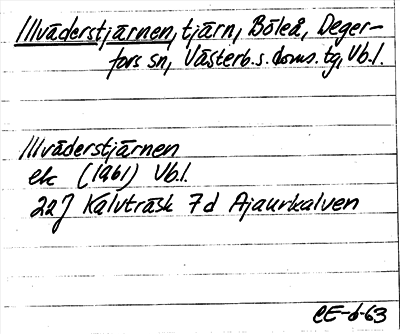 Illväderstjärnen, tjärn, Böleå, Deger-
fors sn, Västerb. s. doms. tg, Vb. l.
Illväderstjärnen
ek (1961) Vb. l.
22J Kalvträsk 7d Ajaurkalven
CE-d-63